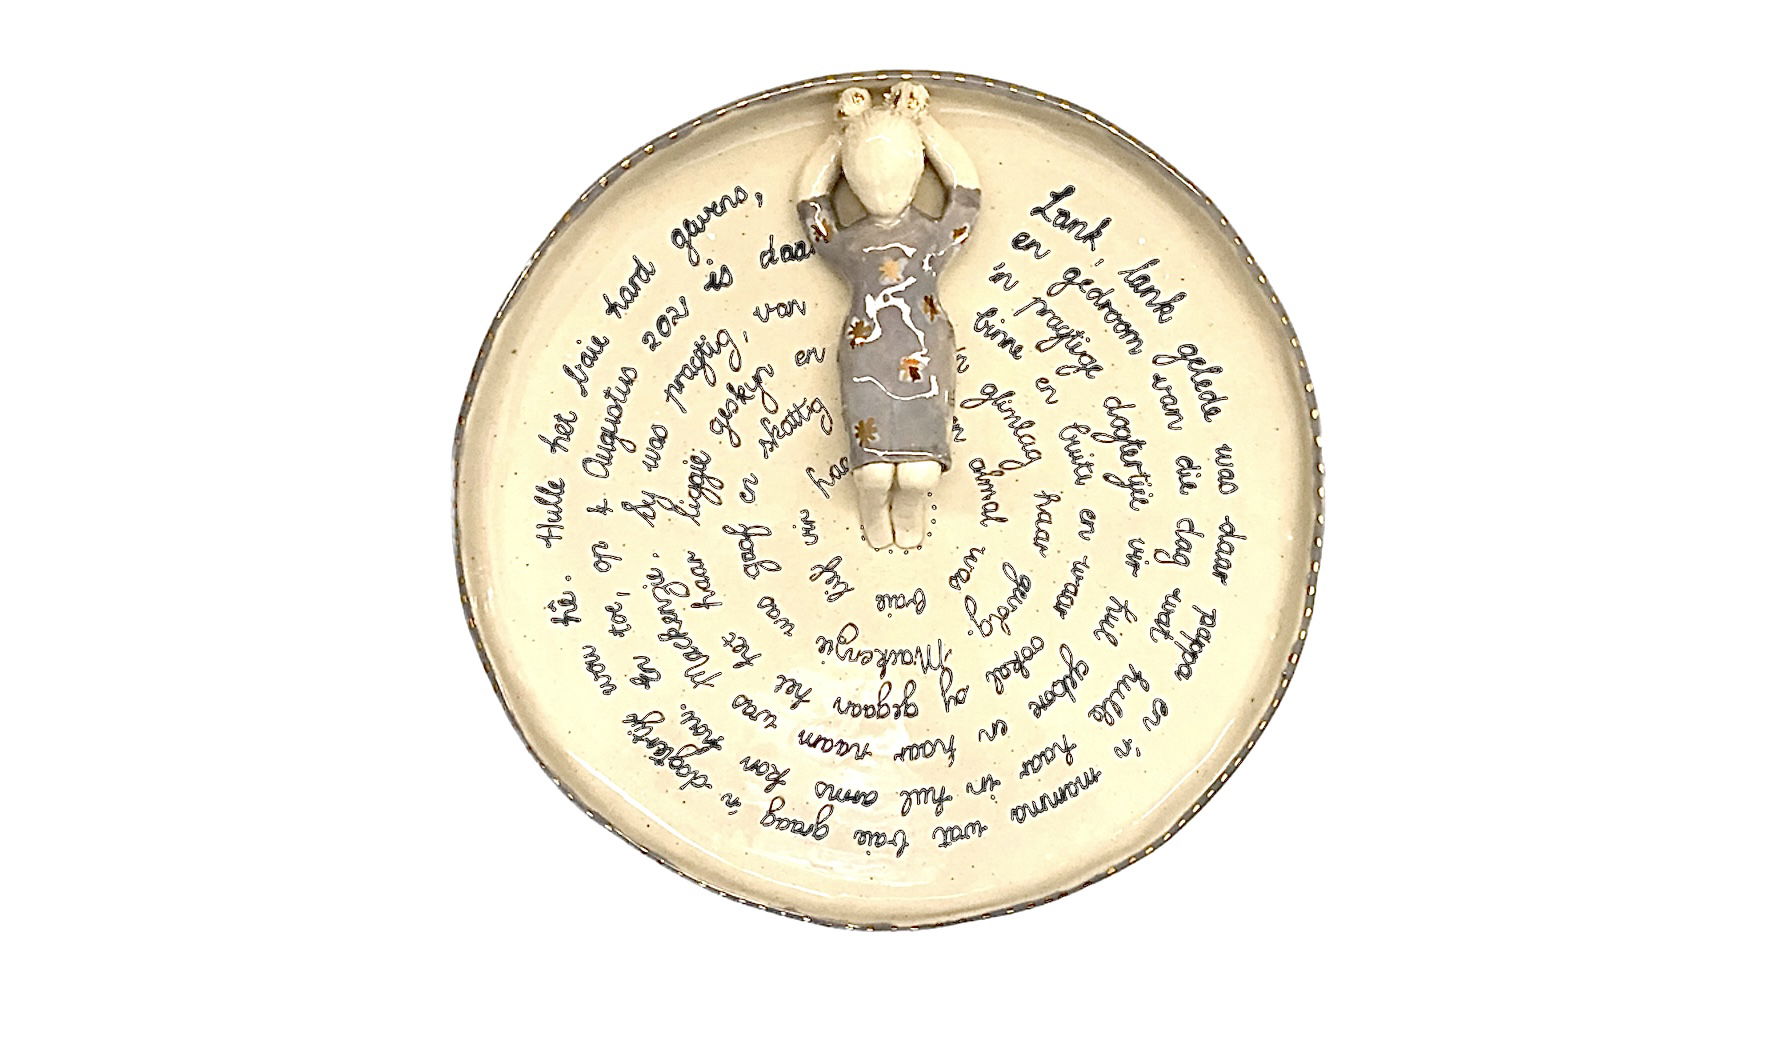 Lank, lank gelede was daar pappa en 'n mamma wat baie graag 'n dogtertjie wou hê. Hulle het baie hard gewens,
en gedroom van die dag wat hulle haar in hul arms kon hou. En toe, op 4 Augustus 2021 is daar
'n pragtige dogtertjie vir hul gebore en haar naam was Mackenzie. Sy was pragtig, van
binne en buite en waar ookal sy gegaan het het haar liggie geskyn en
'n glimlag haar gevolg. Mackenzie was gaaf en skattig
en almal was baie lief vir haa